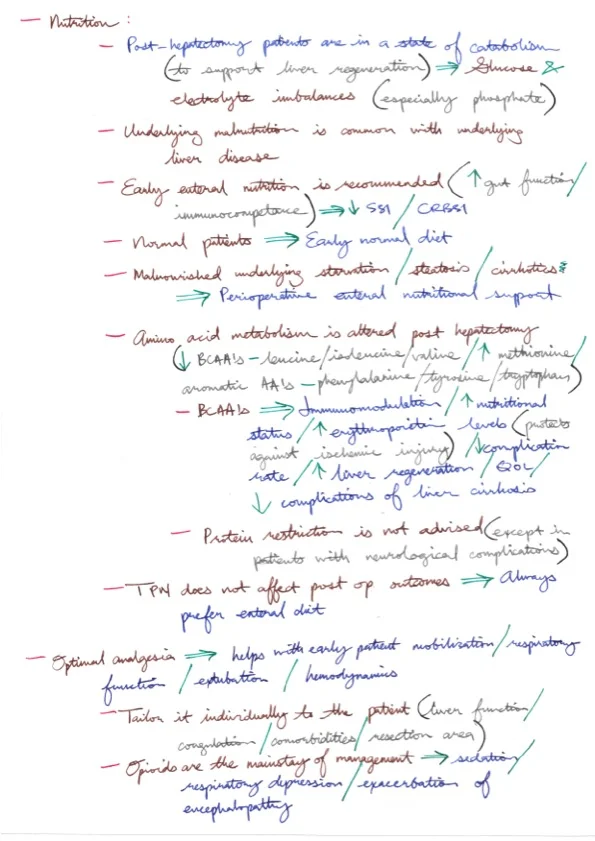 — Nutrition :
— Post-hepatectomy patients are in a state of catabolism
(to support liver regeneration) ⇒ Glucose &
electrolyte imbalances (especially phosphate)
— Underlying malnutrition is common with underlying
liver disease
— Early enteral nutrition is recommended (↑ gut function/
immunocompetence) ⇒ ↓ SSI / CRBSI
— Normal patients ⇒ Early normal diet
— Malnourished underlying starvation / steatosis / cirrhotics
⇒ Perioperative enteral nutritional support
— Amino acid metabolism is altered post hepatectomy
(↓ BCAA's – leucine/isoleucine/valine / ↑ methionine/
aromatic AA's – phenylalanine/tyrosine/tryptophan)
— BCAA's ⇒ Immunomodulation / ↑ nutritional
status / ↑ erythropoietin levels (protects
against ischemic injury) / ↓ complication
rate / ↑ liver regeneration / QOL /
↓ complications of liver cirrhosis
— Protein restriction is not advised (except in
patients with neurological complications)
— TPN does not affect post op outcomes ⇒ Always
prefer enteral diet
— Optimal analgesia ⇒ helps with early patient mobilization / respiratory
function / extubation / hemodynamics
— Tailor it individually to the patient (liver function/
coagulation / comorbidities / resection area)
— Opioids are the mainstay of management ⇒ sedation /
respiratory depression / exacerbation of
encephalopathy